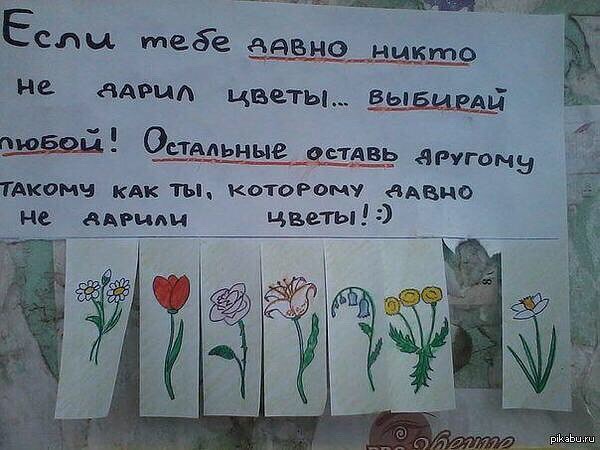 Если тебе давно никто
не дарил цветы... выбирай
любой! Остальные оставь другому
такому как ты, которому давно
не дарили цветы! :)
8
Зрение
pikabu.ru